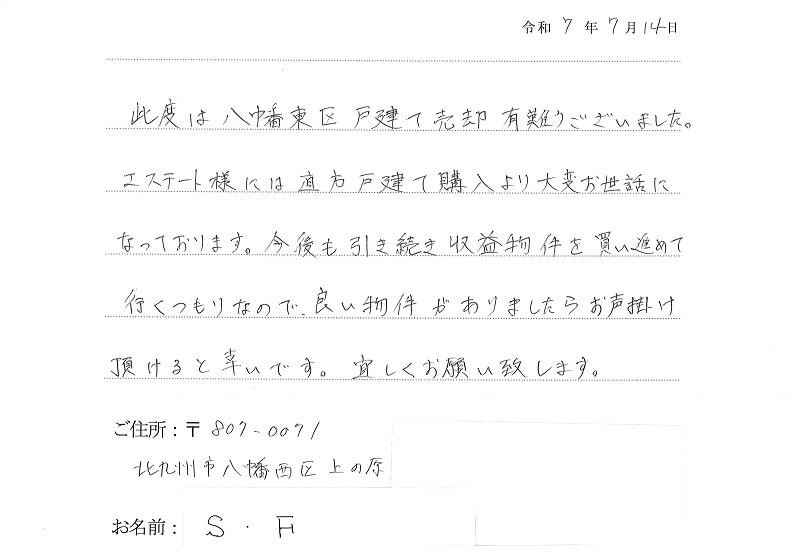 令和 7 年 7 月 14 日
此度は八幡東区戸建て売却有難うございました。
エステート様には直方戸建て購入より大変お世話に
なっております。今後も引き続き収益物件を買い進めて
行くつもりなので、良い物件がありましたらお声掛け
頂けると幸いです。宜しくお願い致します。
ご住所：〒807-0071
北九州市八幡西区上の原
お名前： S . F